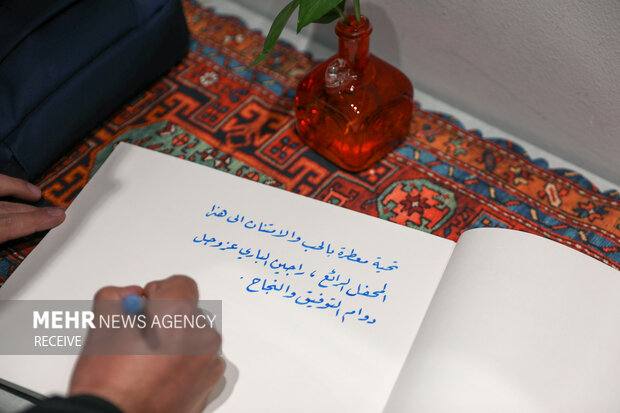 تحية معطرة بالحب والامتنان الى هذا
المحفل الرائع ، راجين الباري عز وجل
دوام التوفيق والنجاح .
MEHR NEWS AGENCY
RECEIVE